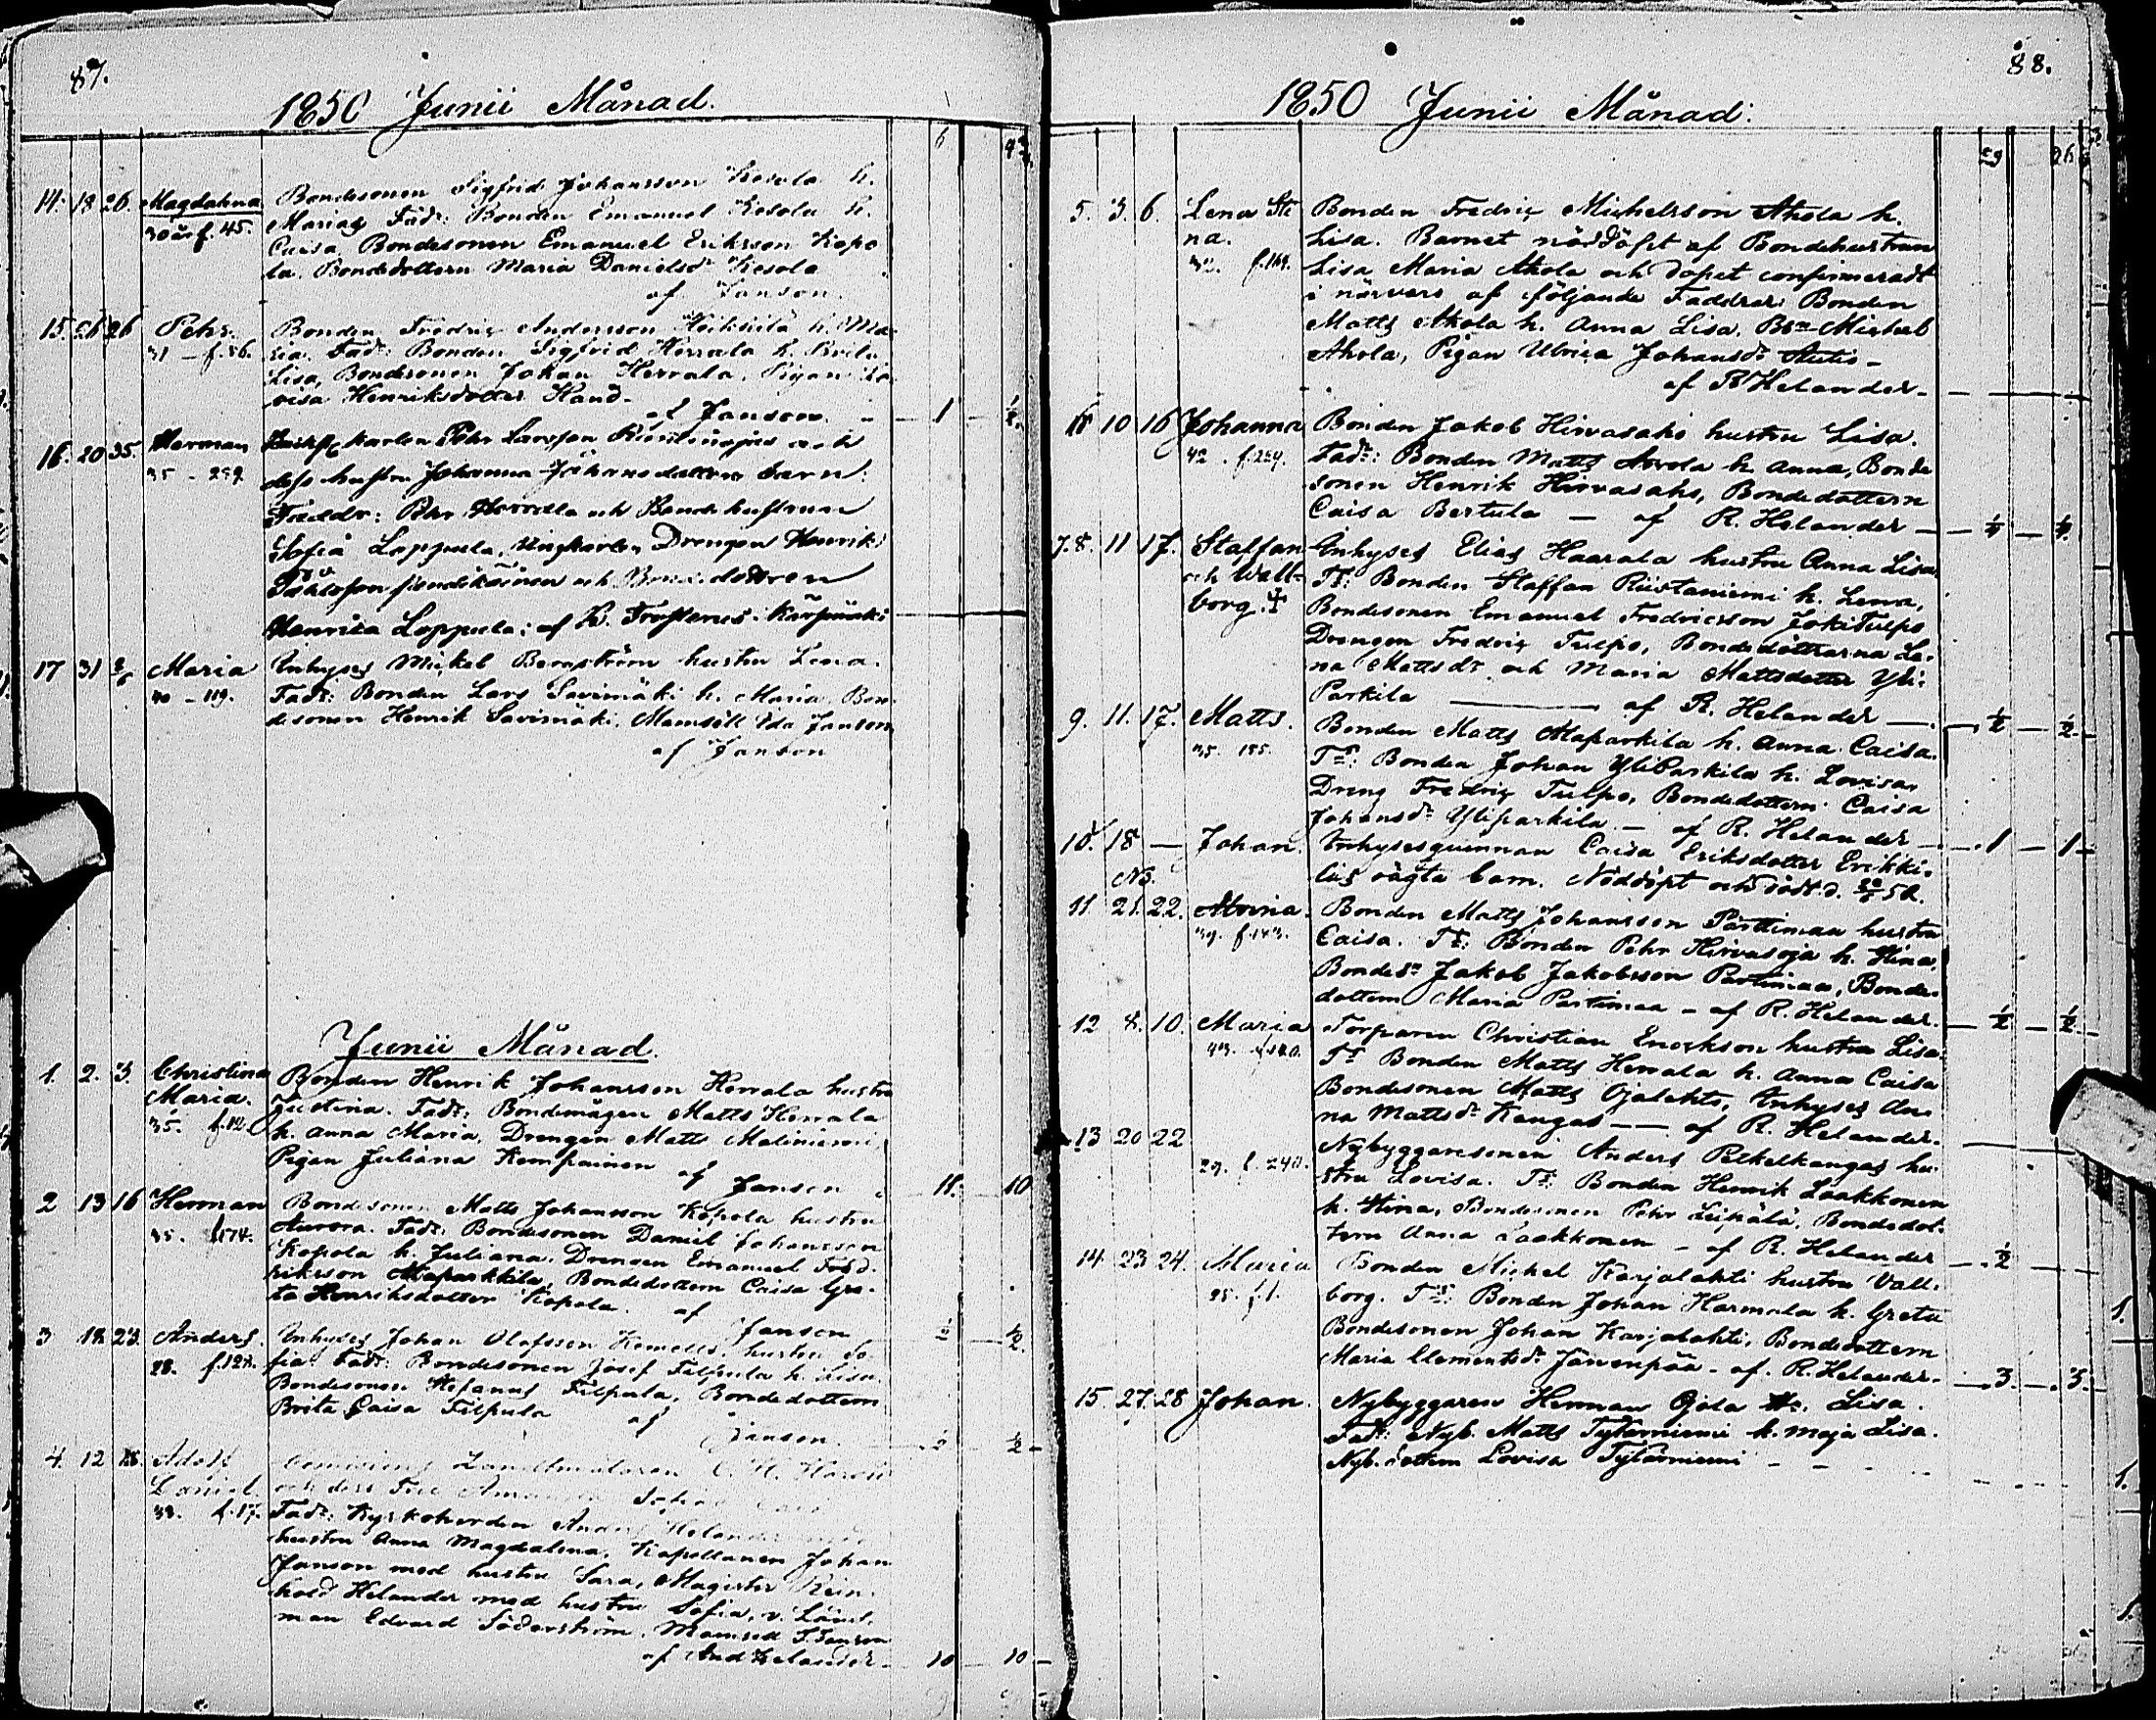 87.
1850 Junii Månad.
6
14. 18 26. Magdalena Bondesonen Sigfrid Johansson Kesola h.
30 år f. 45. Marias Fadr: Bonden Emanuel Kesola h.
Caisa, Bondesonen Emanuel Eriksson Kopo
la. Bondedottern Maria Danielsdr Kesola
af Janson.
15. 26 26 Pehr. Bonden Fredric Andersson Heikkilä h. Ma
31 - f. 56. ria. Fadr: Bonden Sigfrid Herrala h. Brita
Lisa, Bondesonen Johan Herrala, Pigan Lo
visa Henriksdotter Hand.
af Janson. 1 ½
16. 20 35. Herman karlen Pehr Larsson och
35 - 292 dess hustru Johanna Johansdotters barn.
Faddr: Pehr Herrala och Bondehustrun
Sofia Loppula, Ungkarlen Drengen Henrik
och Bondedottren
Henrica Loppula; af
17 31 2/6 Maria Inhyses Mickel Bergström hustru Lena.
40 - 119. Fadr: Bonden Lars Savimäki h. Maria, Bon
desonen Henrik Savimäki. Mamsell Ida Janson
af Janson
Junii Månad.
1. 2. 3. Christina Bonden Henrik Johansson Herrala hustru
Maria. Justina. Fadr: Bondemågen Matts Herrala
35. f. 12. h. Anna Maria, Drengen Matts Maliniemi,
Pigan Juliana Kempainen
af Janson 11. 10
2 13 16 Herman Bondesonen Matts Johansson Kopola hustru
35. f. 174. Aurora. Fadr: Bondesonen Daniel Johansson
Kopola h. Juliana. Drengen Emanuel Fred
riksson Alaparkkila, Bondedottern Caisa Gre
ta Henriksdotter Kopola. af
Janson ½ ½
3 18 23. Anders. Inhyses Johan Olofsson hustru So
28. f. 128. fia. Fadr: Bondesonen Josef Filpula h. Lisa,
Bondesonen Stefanus Filpula, Bondedottern
Brita Caisa Filpula af
Janson. ½ ½
4. 12 Adolf Landtmätaren
Daniel. och dess Fru Sofia
33. f. 17. Fadr: Kyrkoherden Anders Helander
hustru Anna Magdalena, Kapellanen Johan
Janson med hustru Sara, Magister Rein
hold Helander med hustru Sofia, v. Länd.
man Edvard Söderström, Mamsell Janson
af And Helander 10 10
88.
1850 Junii Månad.
29 26
5. 3. 6. Lena Sti Bonden Fredric Michelsson Ahola h.
na. Lisa. Barnet nöddöpt af Bondehustrun
f. 164. Lisa Maria Ahola och dopet confirmeradt
i närvaro af följande Faddrar: Bonden
Matts Ahola h. Anna Lisa. Bsn Michel
Ahola, Pigan Ulrica Johansdr Autio -
af R Helander -
6 10 16 Johanna Bonden Jakob Hirvasaho hustru Lisa.
42. f. 254. Fadr: Bonden Matts Arvola h. Anna, Bonde
sonen Henrik Hirvasaho, Bondedottern
Caisa Bertula - af R. Helander
7.8. 11 17. Staffan Inhyses Elias Haarala hustru Anna Lisa.
och Wall- Fr: Bonden Staffan Riistaniemi h. Lena,
borg. Bondesonen Emanuel Fredricsson JokiTulpo
Drengen Fredric Tulpo, Bondedöttrarna Le-
na Mattsdr och Maria Mattsdotter Yli-
Parkila af R. Helander ½ ½
9. 11. 17. Matts. Bonden Matts Alaparkila h. Anna Caisa.
35. 185. Fr: Bonden Johan YliParkila h. Lovisa,
Dreng Fredric Tulpo, Bondedottern Caisa
Johansdr Yliparkila - af R. Helander 1 1
10. 18 - Johan. Inhysesquinnan Caisa Eriksdotter Erikki-
läs oägta barn. Nöddöpt och dödt d.
11 21. 22. Bonden Matts Johansson Parttimaa hustru
39. f. 143. Caisa. Fr: Bonden Pehr Hirvasoja h. Stina,
Bondesn Jakob Jakobsson Partimaa, Bonde
dottern Maria Partimaa - af R. Helander. ½ ½
12 8. 10. Maria Torparen Christian Enockson hustru Lisa.
Fr Bonden Matts Herrala h. Anna Caisa
Bondesonen Matts Ojalehto, Inhyses An-
na Mattsdr Kangas - af R. Helander.
13 20 22 Nybyggaresonen Anders Petkelkangas hu-
29. f. 240. stru Lovisa. Fr: Bonden Henrik Laakkonen
h. Stina, Bondesonen Pehr Leipälä, Bondedot-
tern Anna Laakkonen - af R. Helander ½
14. 23 24. Maria Bonden Mickel Karjalahti hustru Vall-
f. 1. borg. Fr: Bonden Johan Harmala h. Greta
Bondesonen Johan Karjalahti, Bondedottern
Maria Clementsdr Jänenpää - af. R. Helander- 3. 3.
15 27. 28 Johan. Nybyggaren Herman Ojala h. Lisa.
Fadr: Nyb. Matts Tytärniemi h. Maja Lisa.
Nyb. dottern Lovisa Tytärniemi